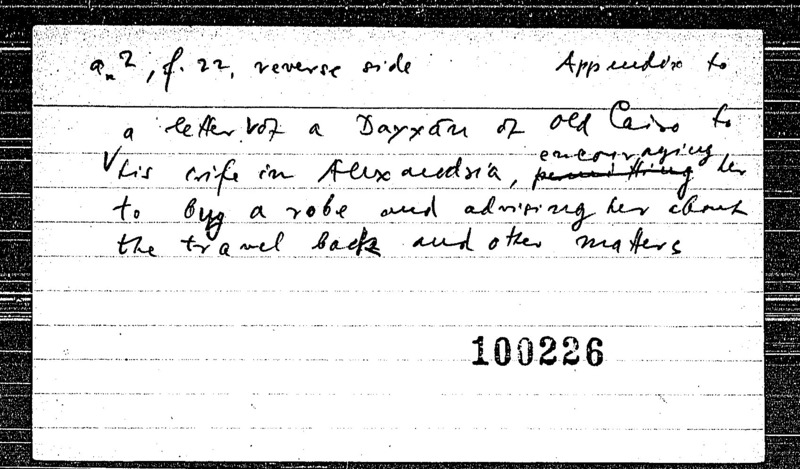 a_x 2, f. 22, reverse side Appendix to
a letter of a Dayyān of Old Cairo to
his wife in Alexandria, encouraging her
to buy a robe and advising her about
the travel back and other matters
100226